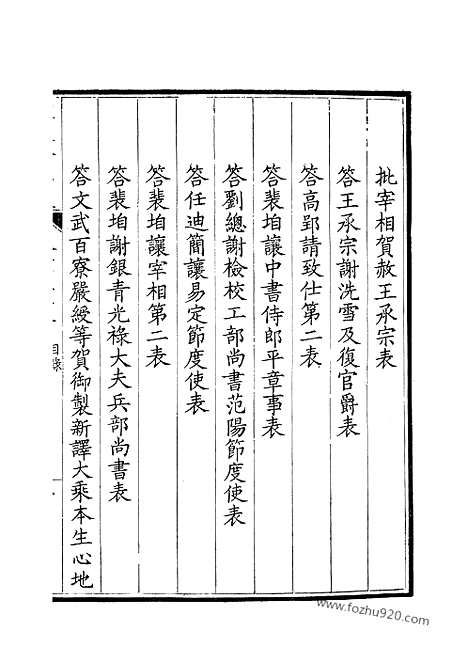 批宰相賀赦王承宗表
答王承宗謝洗雪及復官爵表
答高郢請致仕第二表
答裴垍讓中書侍郎平章事表
答劉總謝檢校工部尚書范陽節度使表
答任迪簡讓易定節度使表
答裴垍讓宰相第二表
答裴垍謝銀青光祿大夫兵部尚書表
答文武百寮嚴綬等賀御製新譯大乘本生心地
目錄
www.fozhu920.com